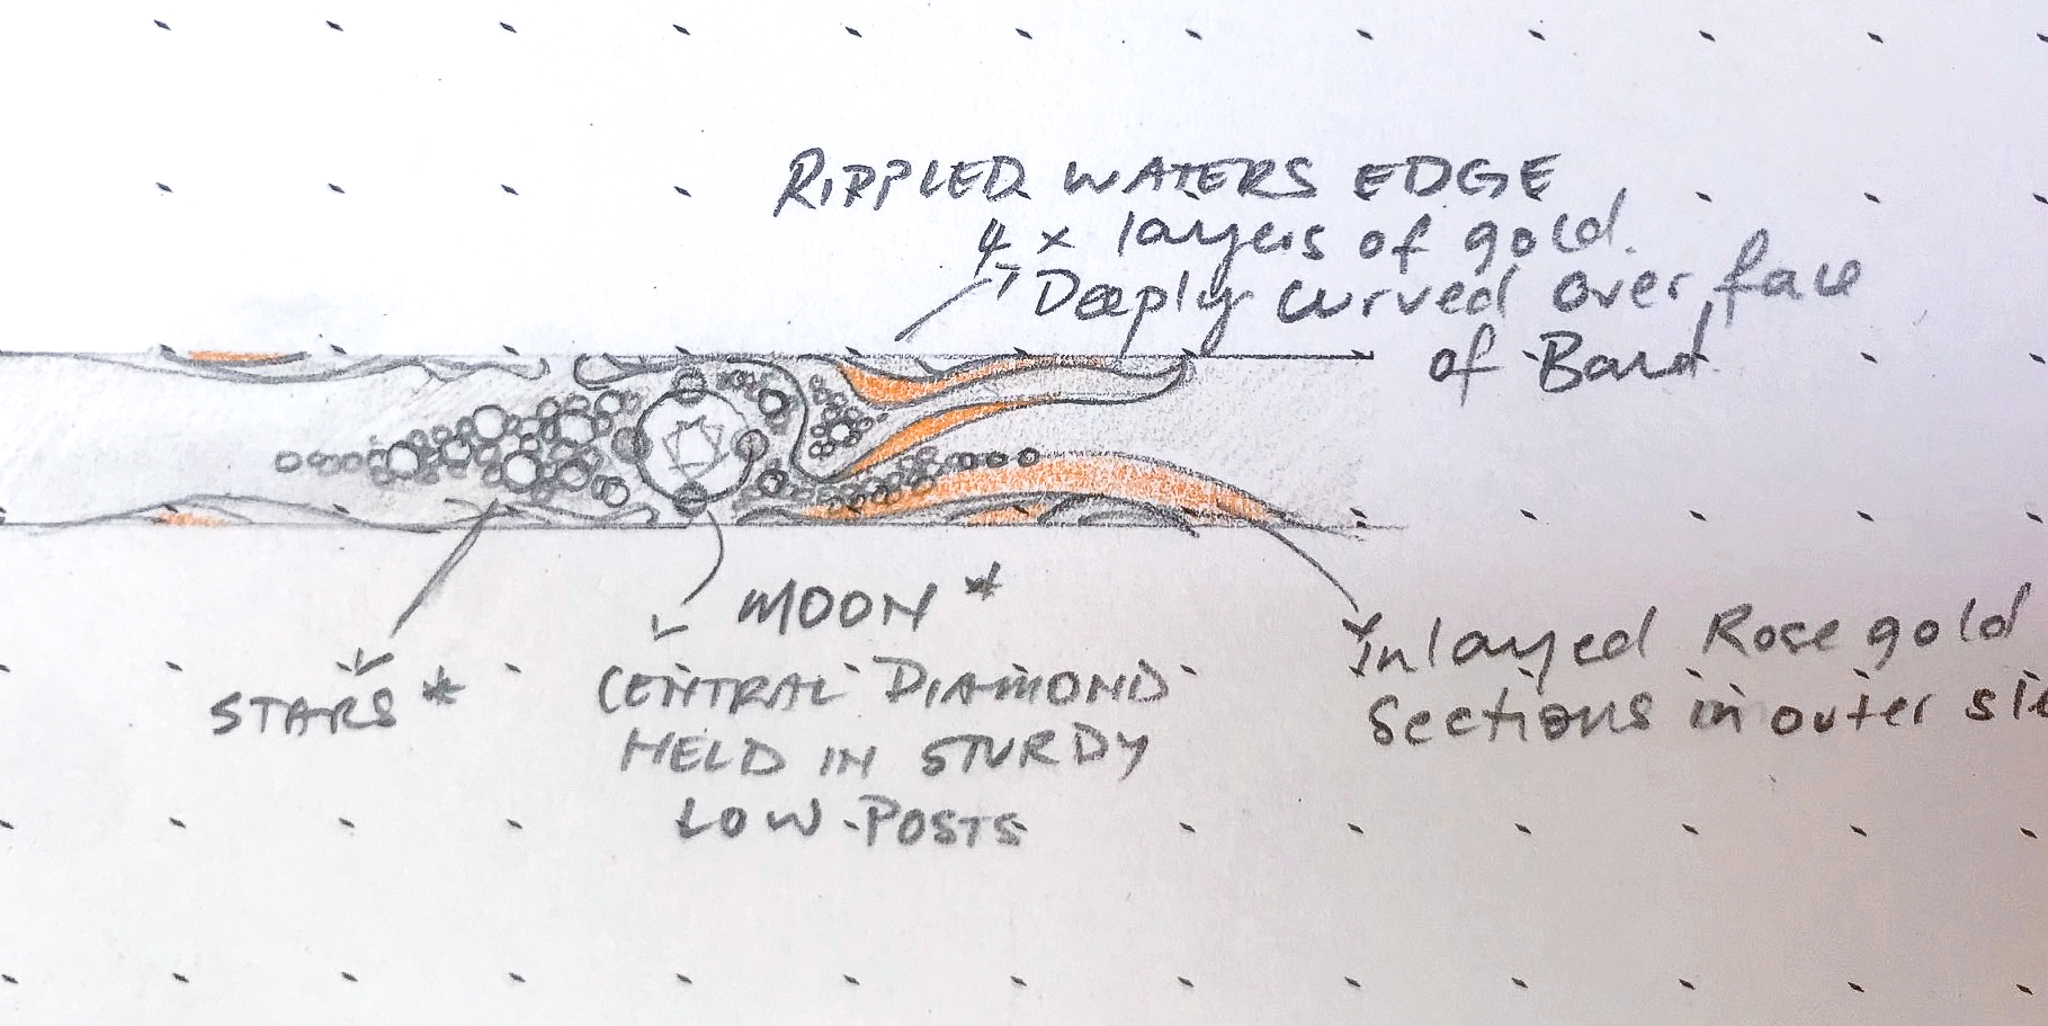 RIPPLED WATERS EDGE
4 x layers of gold.
Deeply curved over face
of Band
MOON *
CENTRAL DIAMOND
HELD IN STURDY
LOW POSTS
STARS *
Inlayed Rose gold
Sections in outer